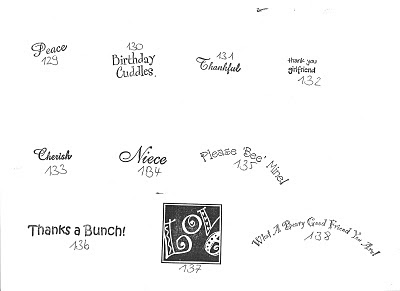 Peace
129
130
Birthday
Cuddles,
131
Thankful
thank you
girlfriend
132
Cherish
133
Niece
134
Please 'Bee' Mine!
135
Thanks a Bunch!
136
LOVE
137
What A Beary Good Friend You Are!
138